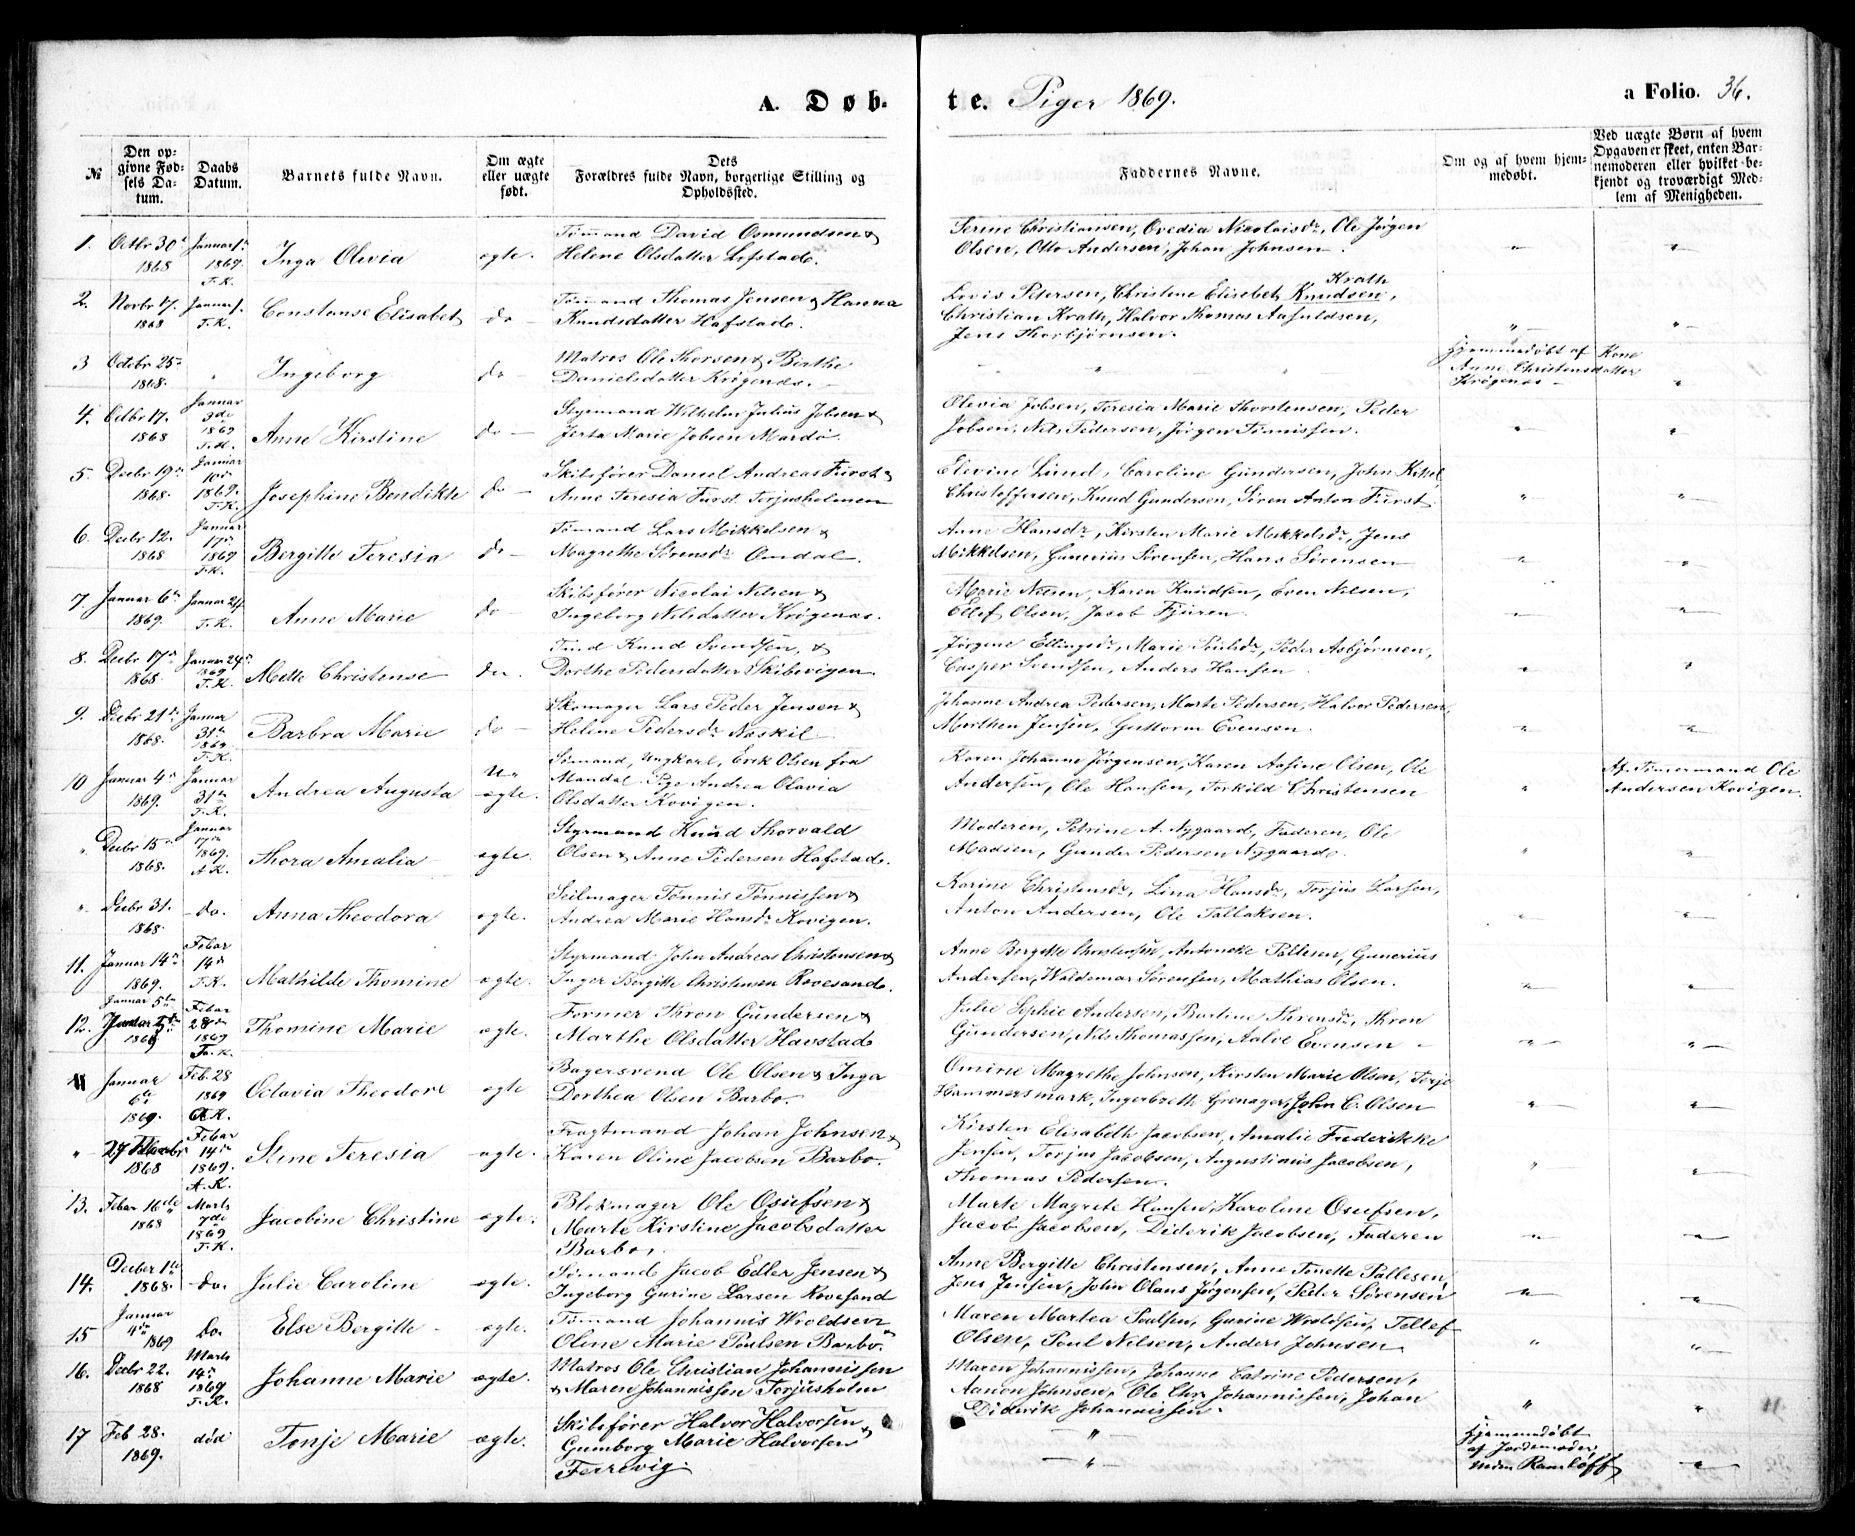 A. Døb-
te. Piger 1869.
a Folio. 36.
№
Den op-
givne Fød-
sels Da-
tum.
Daabs
Datum.
Barnets fulde Navn.
Om ægte
eller uægte
født.
Dets
Forældres fulde Navn, borgerlige Stilling og
Opholdssted.
Faddernes Navne.
Om og af hvem hjem-
medøbt.
Ved uægte Børn af hvem
Opgaven er skeet, enten Bar-
nemoderen eller hvilket be-
kjendt og troværdigt Med-
lem af Menigheden.
1. Octbr 30te 1868
Januar 1ste 1869. T.K.
Inga Olivia
ægte.
Tømmand David Osmundsen &
Helene Olsdatter Lofstad.
Serine Christiansen, Ovedia Nicolaisdr, Ole Jørgen
Olsen, Otto Andersen, Johan Johnsen.
2. Novbr 17. 1868
Januar 1. T.K.
Constanse Elisabet
do
Tømmand Thomas Jensen & Hanna
Knudsdatter Hafstad.
Krath
Lovis Petersen, Christine Elisebet Knudsen,
Christian Krath, Halvor Thomas Aasuldsen,
Jens Thorbjørnsen.
3 Octobr 25de 1868.
"
Ingeborg
do
Matros Ole Thorsen & Birthe
Danielsdatter Krøgenæs.
Hjemmedøbt af Kone
Anne Christensdatter
Krøgenæs
4. Octbr 17. 1868
Januar 3de 1869 T.K.
Anne Kirstine
do
Styrmand Wilhelm Julius Jobsen &
Jerta Marie Jobsen Mardø.
Olevia Jobsen, Teresia Marie Thorstensen, Peder
Jobsen, Nil, Pedersen, Jørgen Tønnissen.
5. Decbr 19de 1868.
Januar 10de 1869. T.K.
Josephine Bendikte
do
Skibsfører Daniel Andreas Furst &
Anne Teresia Furst Torjusholmen
Elevine Lund, Caroline Gundersen, John Kittel
Christoffersen, Knud Gunderson, Søren Anton Furst
6. Decbr 12. 1868
Januar 17de 1869 T.K.
Bergitte Teresia
do
Tømand Lars Mikkelsen &
Magrethe Sørensdr Omdal.
Anne Hansdr, Kirsten Marie Mikkelsdr, Jens
Mikkelsen, Gunerius Sørensen, Hans Sørensen
7. Januar 6te 1869.
Januar 24. T.K.
Anne Marie
do
Skibsfører Nicolai Nilsen &
Ingeborg Nilsdatter Krøgenæs.
Marie Nilsen, Karen Knudsen, Even Nilsen,
Ellef Olsen, Jacob Fjuren.
8. Decbr 17de 1868
Januar 24de 1869 T.K.
Mette Christense
do.
Tmd Knud Svendsen, &
Dorthe Pedersdatter Skibevigen
Jørgine Ellingsdr, Marie Poulsdr, Peder Asbjørnsen,
Casper Svendsen, Anders Hansen
9. Decbr 21de 1868.
Januar 31te 1869 T.K.
Barbra Marie
do
Skomager Lars Peder Jensen &
Helene Pedersdr Naskil
Johanne Andrea Pedersen, Marte Pedersen, Halvor Pedersen,
Morthen Jensen, Guttorm Evensen.
10 Januar 4de 1869.
Januar 31te T.K.
Andrea Augusta
U-
ægte.
Sømand, Ungkarl, Erik Olsen fra
Mandal. Pige Andrea Olavia
Olsdatter Kovigen.
Karen Johanne Jørgensen, Karen Aasine Olsen, Ole
Andersen, Ole Hansen, Torkild Christensen
Af Tømermand Ole
Andersen Kovigen.
" Decbr 15de 1868.
Januar 17de 1869. A.K.
Thora Amalia
ægte.
Styrmand Knud Thorvald
Olsen & Anne Pedersen Hafstad.
Moderen, Petrine A. Nygaard, Faderen, Ole
Madsen, Gunder Pedersen Nygaard.
" Decbr 31. 1868.
do.
Anna Theodora
ægte.
Seilmager Tønnis Tønnissen &
Andrea Marie Hansdr Kovigen.
Karine Christensdr, Lina Hansdr, Torjus Larsen,
Anton Andersen, Ole Tallaksen.
11. Januar 14de 1869.
Febar 14de T.K.
Mathilde Thomine
ægte.
Styrmand John Andreas Christensen &
Inger Bergitte Christensen Revesand.
Anne Bergitte Christensen, Antonette Pallesen, Gunerius
Andersen, Waldemar Sørensen, Mathias Olsen.
12. Januar 5te 1869
Febar 28de 1869 T.K.
Thomine Marie
ægte.
Former Thron Gundersen &
Marthe Olsdatter Havstad
Julie Sophie Andersen, Bertine Thronsdr, Thron
Gundersen, Nils Thomassen, Aalve Evensen
Januar 6te 1869.
Feb. 28 1869 A.K.
Octavia Theodore
ægte
Bagersvend Ole Olsen & Inga
Dorthea Olsen Barbo.
Omine Magrethe Johnsen, Kirsten Marie Olsen, Terje
Hammersmark, Ingerbreth Grenager, John C. Olsen
" 27 Novbr 1868
Febar 14de 1869. A.K.
Stine Teresia
ægte.
Fragtmand Johan Johnsen &
Karen Oline Jacobsen Barbo.
Kirsten Elisabeth Jacobsen, Amalie Frederikke
Jensen, Torjus Jacobsen, Augustinus Jacobsen,
Thomas Pedersen.
13. Febar 16de 1868
Marts 7de 1869 T.K.
Jacobine Christine
ægte.
Blokmager Ole Osufsen &
Marte Kirstine Jacobsdatter
Barbo.
Marte Magrete Hansen, Karoline Osufsen,
Jacob Jacobsen, Diderik Jacobsen, Faderen
14. Decber 1ste 1868.
do.
Julie Caroline
ægte.
Sømand Jacob Edler Jensen &
Ingeborg Gurine Larsen Revesand
Anne Bergitte Christensen, Anne Tonette Pallesen,
Jens Jensen, John Olaus Jørgensen, Peder Sørensen
15 Januar 4de 1869
Do
Else Bergitte
ægte.
Tømmand Johannis Wroldsen
Oline Marie Poulsen Barbo.
Maren Martea Poulsen, Gurine Wroldsen, Tellef
Olsen, Poul Nilsen, Anders Johnsen
16. Decbr 22. 1868
Marts 14de 1869 T.K.
Johanne Marie
ægte.
Matros Ole Christian Johannissen
& Maren Johannissen Torjusholm
Maren Johannissen, Johanne Catrine Pedersen,
Aanon Johnsen, Ole Chr. Johannissen, Johan
Diderik Johannissen.
17 Feb 28. 1869.
død
Tonje Marie
ægte.
Skibsfører Halvor Halvorsen &
Gumborg Marie Halvorsen
Ferrevig.
Hjemmedøbt
af Jordemoder